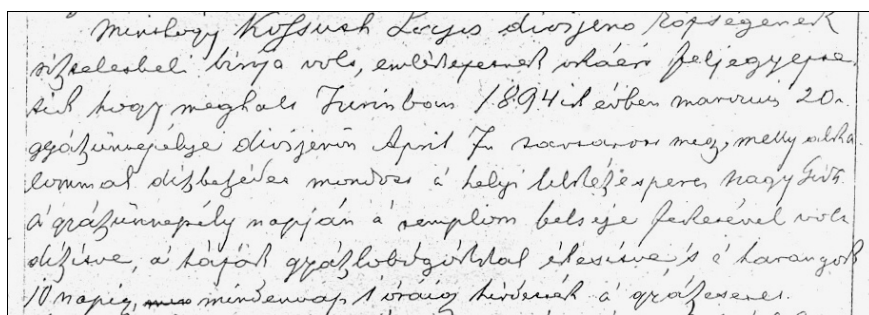 Minthogy Kossuth Lajos diósjenő községének
tiszteletbeli birója volt, emlékezetnek okáért feljegyezte-
tik hogy meghalt Turinban 1894ik évben marczius 20n
gyászünnepélye diósjenőn April 7n tartatott meg, melly alka
lommal diszbeszédet mondott á helyi lelkész esperes Nagy
Á gyászünnepély napján á templom belseje feketével volt
díszitve, á házak gyászlobogókkal ékesitve, s á harangok
10 napig, mindennap 1 óráig hirdették á gyászesetet.